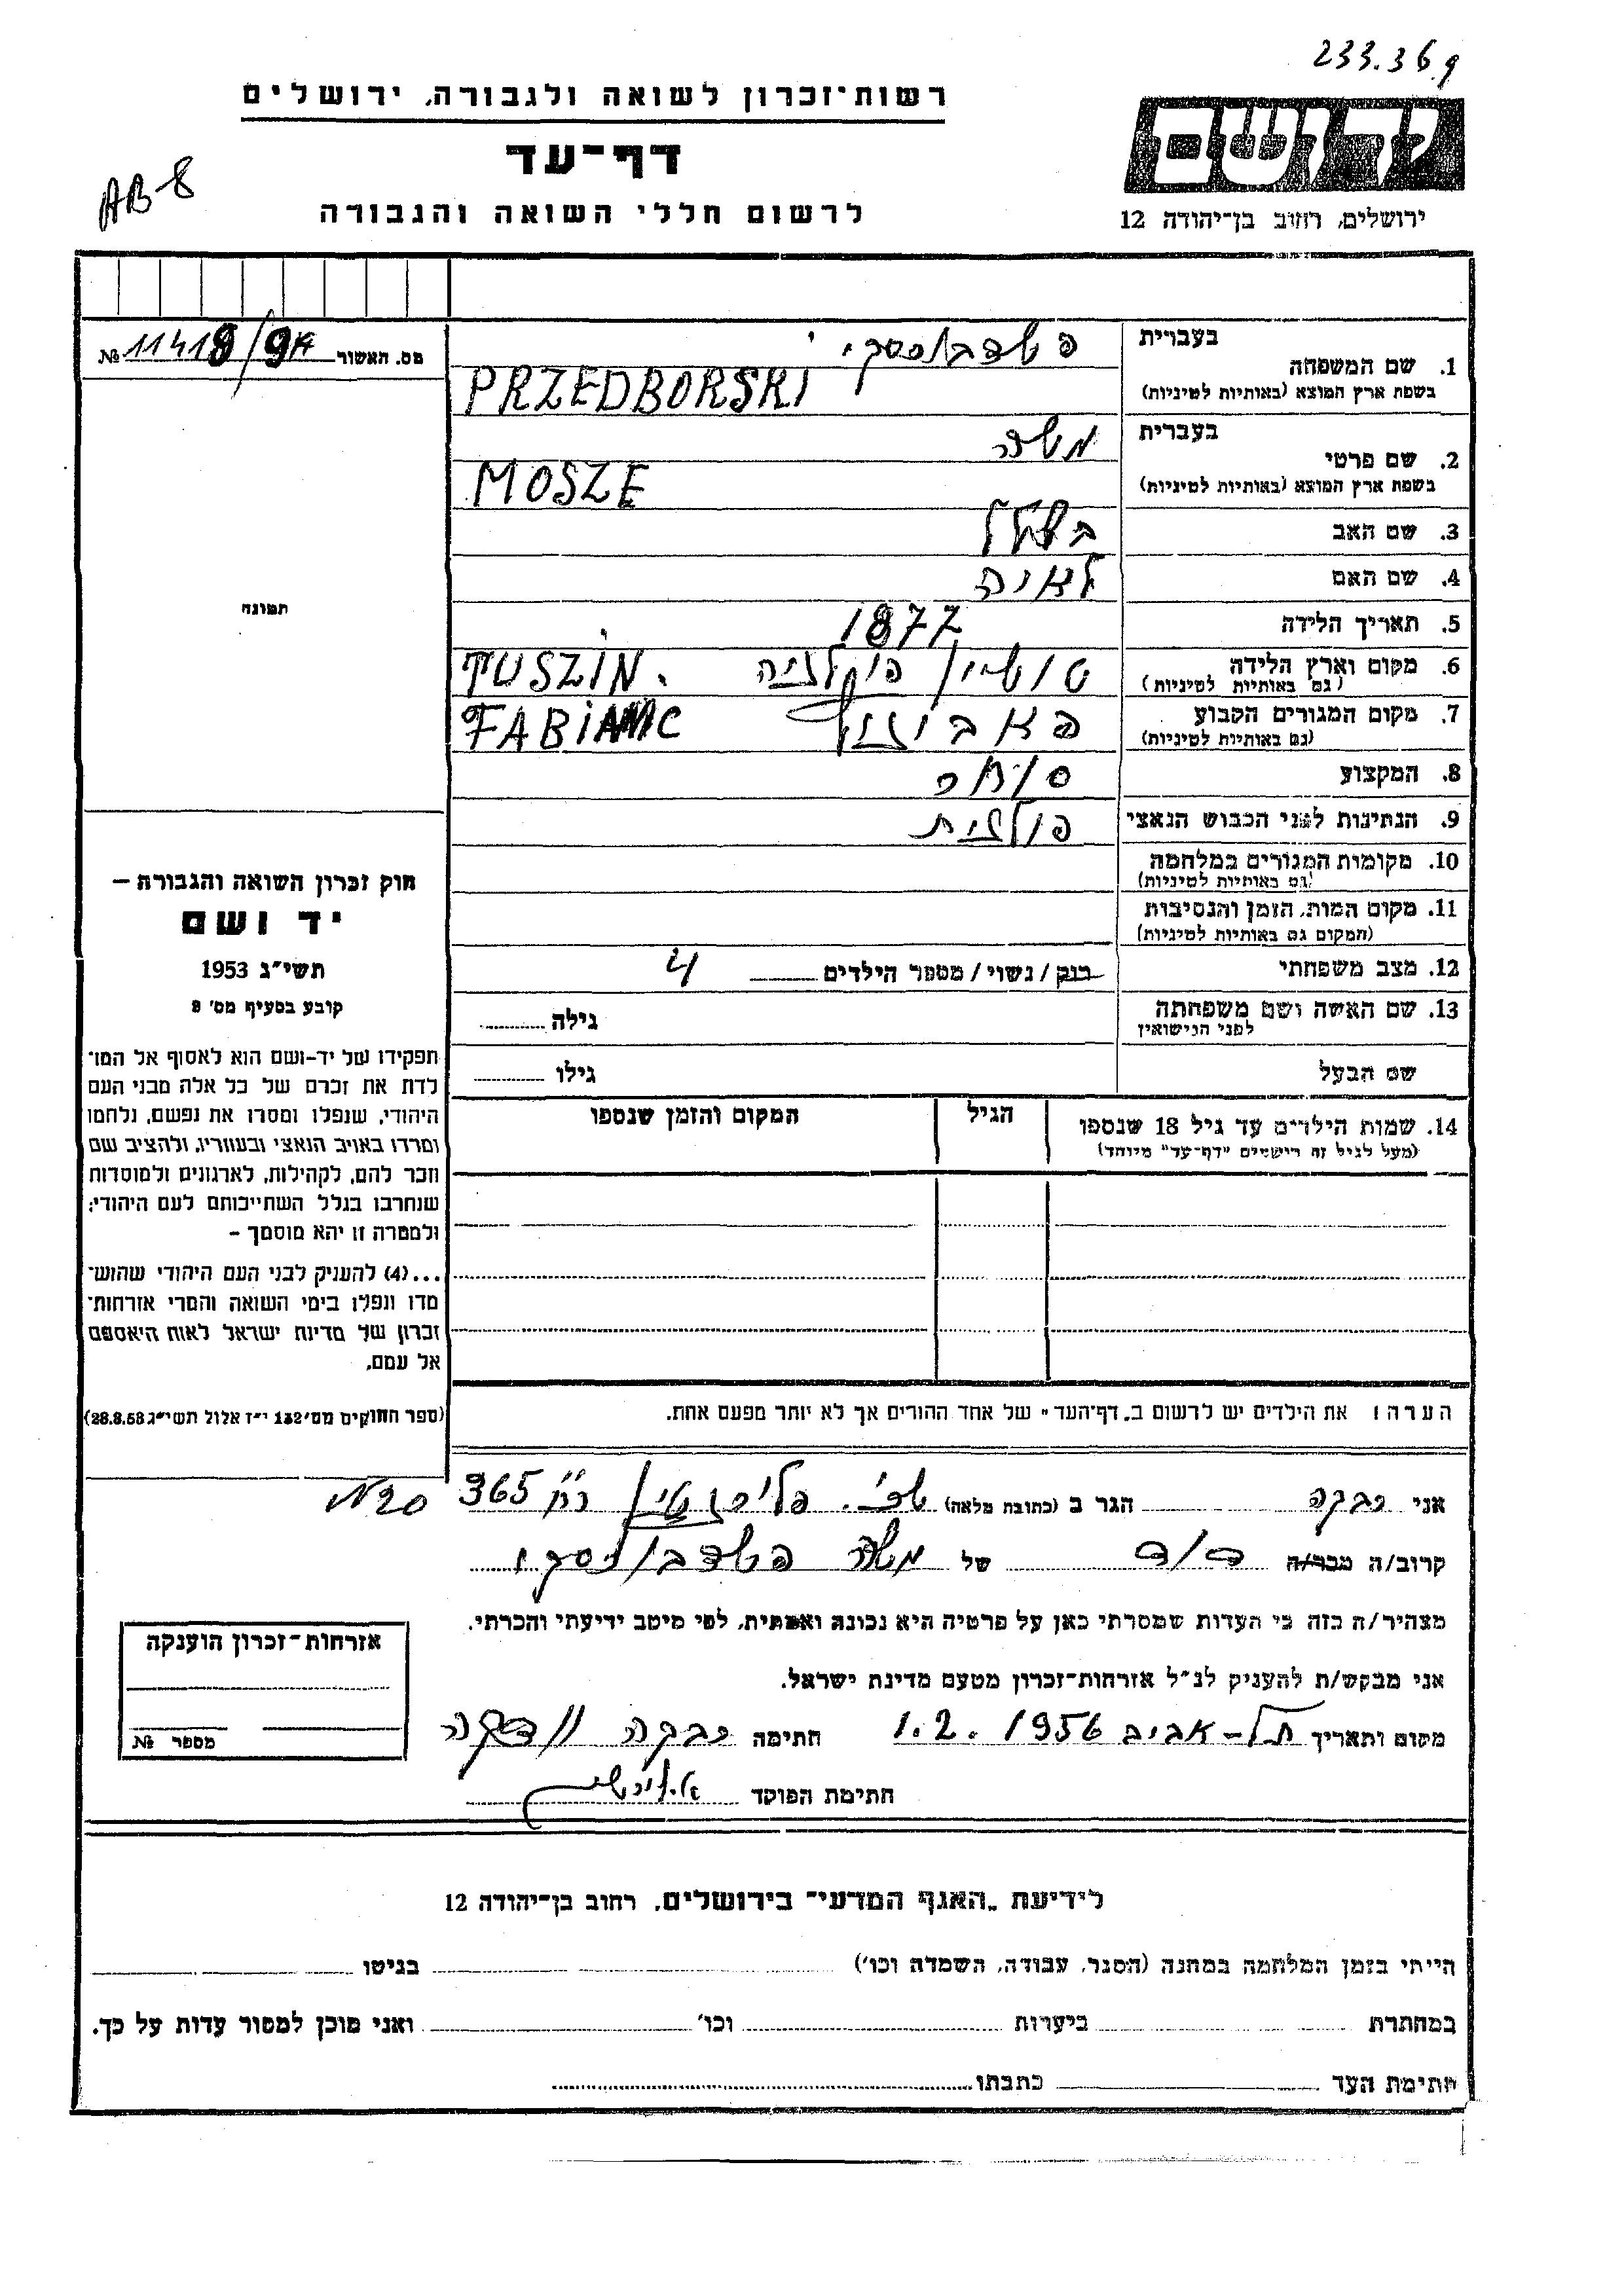 233.369
רשות־זכרון לשואה ולגבורה, ירושלים
דף־עד
לרשום חללי השואה והגבורה
AB-8
ידושם
ירושלים, רחוב בן־יהודה 12
מס. האשור № 11418/9A
בעברית פשדבורסקי
1. שם המשפחה
בשפת ארץ המוצא (באותיות לטיניות) PRZEDBORSKI
בעברית משה
2. שם פרטי
בשפת ארץ המוצא (באותיות לטיניות) MOSZE
3. שם האב בצלאל
4. שם האם לאה
5. תאריך הלידה 1877
6. מקום וארץ הלידה טושין פולניה TUSZIN.
(גם באותיות לטיניות)
7. מקום המגורים הקבוע
(גם באותיות לטיניות)
8. המקצוע סוחר
9. הנתינות לפני הכבוש הנאצי פולנית
10. מקומית המגורים במלחמה
(גם באותיות לטיניות)
11. מקום המות, הזמן והנסיבות
(המקום גם באותיות לטיניות)
12. מצב משפחתי רוק / נשוי / מספר הילדים 4
13. שם האשה ושם משפחתה גילה
לפני הנישואין
שם הבעל גילו
14. שמות הילדים עד גיל 18 שנספו הגיל המקום והזמן שנספו
(מעל לגיל זה רישמים "דף־עד" מיוחד)
תמונה
חוק זכרון השואה והגבורה –
יד ושם
תשי"ג 1953
קובע בסעיף מס' 8
תפקידו של יד-ושם הוא לאסוף אל המו־
לדת את זכרם של כל אלה מבני העם
היהודי, שנפלו ומסרו את נפשם, נלחמו
ומרדו באויב הנאצי ובעוזריו, ולהציב שם
וזכר להם, לקהילות, לארגונים ולמוסדות
שנחרבו בגלל השתייכותם לעם היהודי;
ולמטרה זו יהא מוסמך –
...(4) להעניק לבני העם היהודי שהוש־
מדו ונפלו בימי השואה והמרי אזרחות־
זכרון של מדינת ישראל לאות היאספם
אל עמם.
(ספר החוקים מס' 132 י"ז אלול תשי"ג 28.8.53)
הערה: את הילדים יש לרשום ב„דף־העד" של אחד ההורים אך לא יותר מפעם אחת.
אני רבקה הגר ב (כתובת מלאה) שכ'. רח 365 N20
קרוב/ה מכר/ה דוד של משה פשדבורסקי
מצהיר/ה בזה כי העדות שמסרתי כאן על פרטיה היא נכונה ואמתית, לפי מיטב ידיעתי והכרתי.
אני מבקש/ת להעניק לנ"ל אזרחות־זכרון מטעם מדינת ישראל.
מקום ותאריך תל-אביב 1.2.1956 חתימה רבקה
חתימת הפוקד
אזרחות־זכרון הוענקה
מספר №
לידיעת „האגף המדעי־ בירושלים, רחוב בן־יהודה 12
הייתי בזמן המלחמה במחנה (הסגר, עבודה, השמדה וכו') בגיטו
במחתרת ביערות וכו' ואני מוכן למסור עדות על כך.
חתימת העד כתבתו